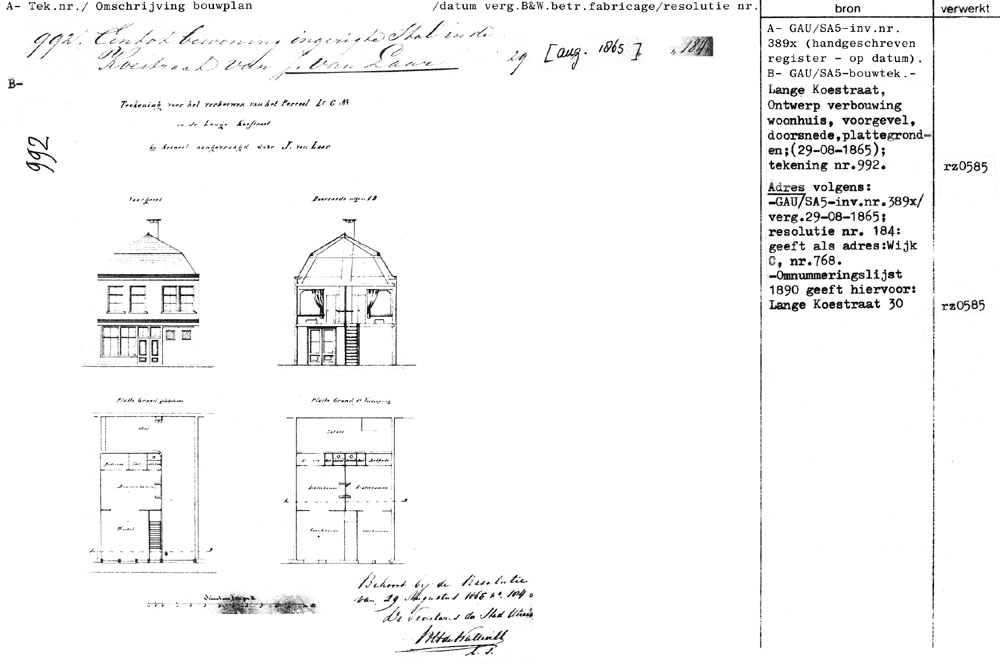 A- Tek.nr./ Omschrijving bouwplan /datum verg.B&W.betr.fabricage/resolutie nr.
bron
verwerkt
992. bewoning ingerigte Stal in de
Koestraat J. van Laar 29 [aug. 1865] 184
B-
992
Teekening voor het verbouwen van het Perceel
in de Lange Koestraat
aangevraagd door J. van Laar
Voorgevel
Doorsnede
Platte Grond gelijkvloers
Platte Grond
Stal
Zolder
Winkel
Achterkamer
Voorkamer
Behoort bij de Resolutie
van 29 Augustus 1865 No. 184
De Secretaris der Stad
L. S.
A- GAU/SA5-inv.nr.
389x (handgeschreven
register - op datum).
B- GAU/SA5-bouwtek.-
Lange Koestraat,
Ontwerp verbouwing
woonhuis, voorgevel,
doorsnede,plattegrond=
en;(29-08-1865);
tekening nr.992.
rz0585
Adres volgens:
-GAU/SA5-inv.nr.389x/
verg.29-08-1865;
resolutie nr. 184:
geeft als adres:Wijk
C, nr.768.
-Omnummeringslijst
1890 geeft hiervoor:
Lange Koestraat 30
rz0585